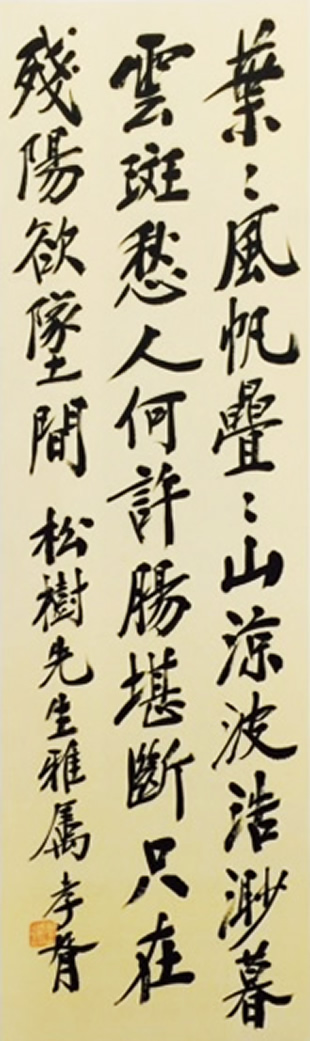 葉〻風帆疊〻山涼波浩渺暮
雲斑愁人何許腸堪斷只在
殘陽欲墜間 松樹先生雅属 孝胥